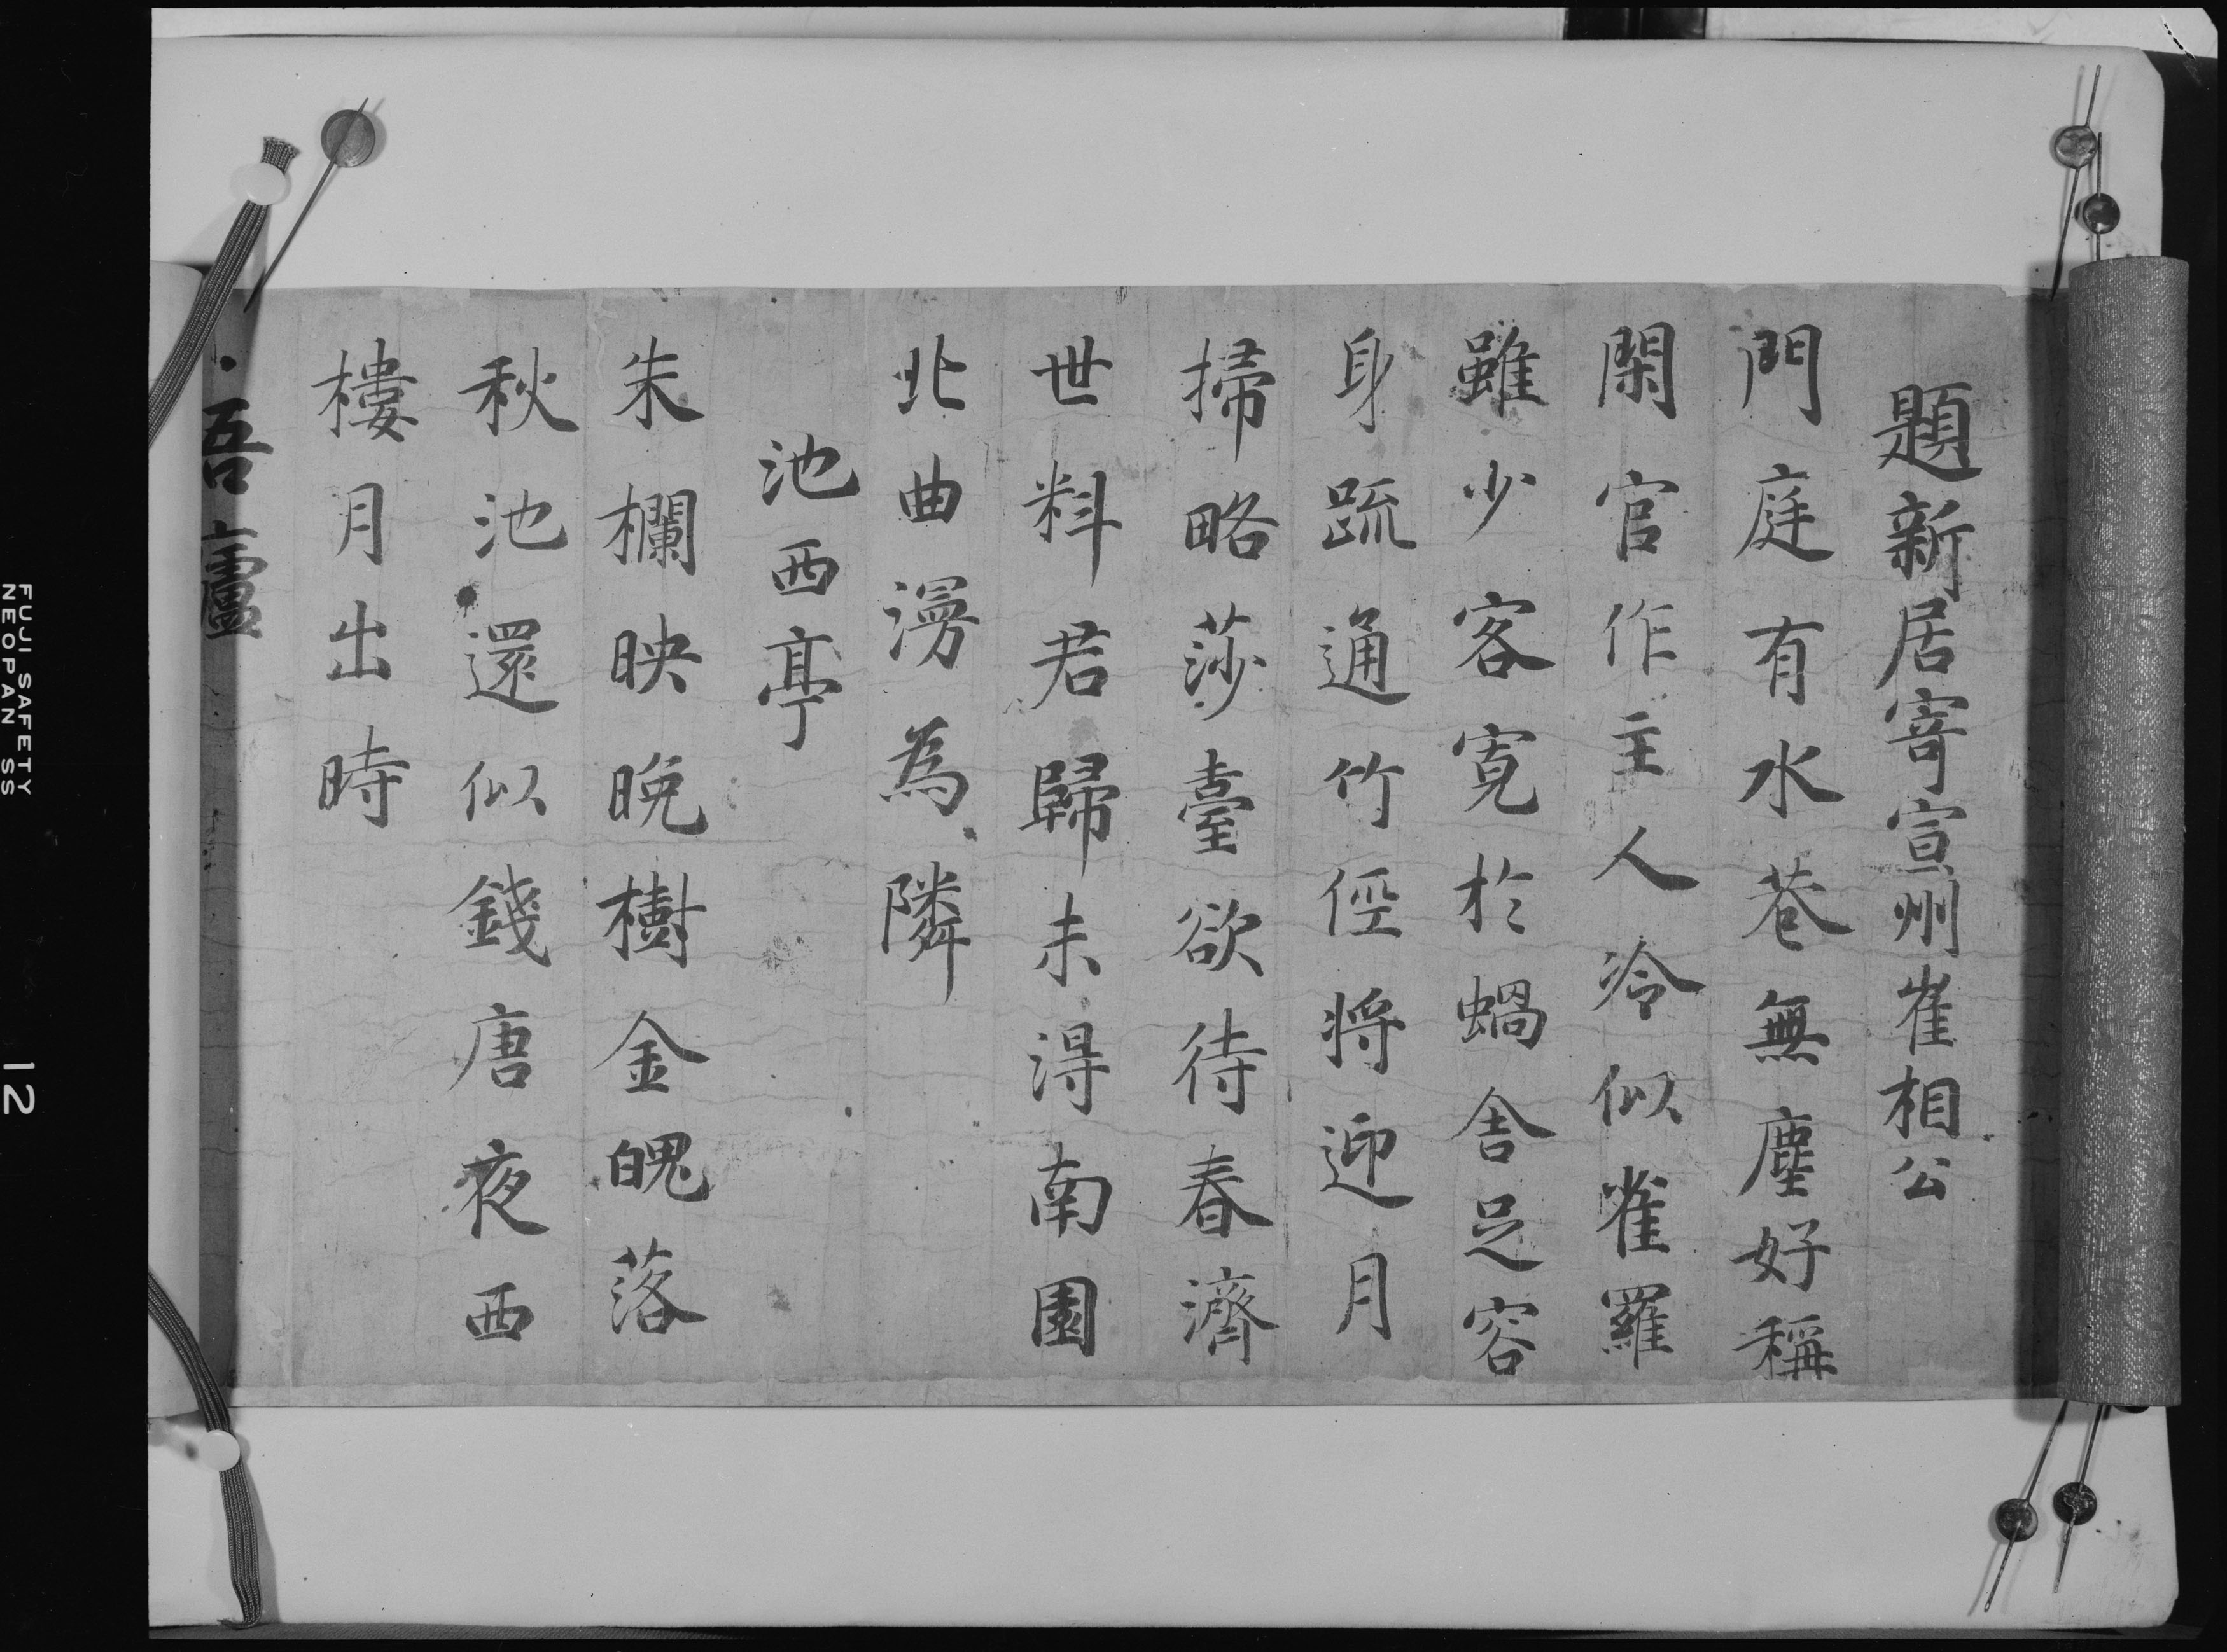 題新居寄宣州崔相公
門庭有水巷無塵好稱
閑官作主人冷似雀羅
雖少客寛於蝸舎足容
身䟽通竹徑将迎月
掃略莎臺欲待春濟
世料君歸未淂南園
北曲漫為隣
池西亭
朱欄映晩樹金魄落
秋池還似錢唐夜西
樓月出時
吾廬
FUJI SAFETY
NEOPAN SS
12